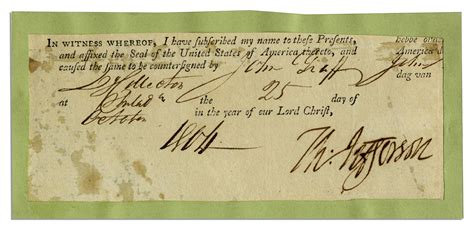 IN WITNESS WHEREOF, I have subscribed my name to these Presents, hebbe
and affixed the Seal of the United States of America thereto, and America
caused the same to be countersigned by John Graff John
D Collector dag van
at Philad a the 25 day of
October in the year of our Lord Christ,
1804 Th: Jefferson